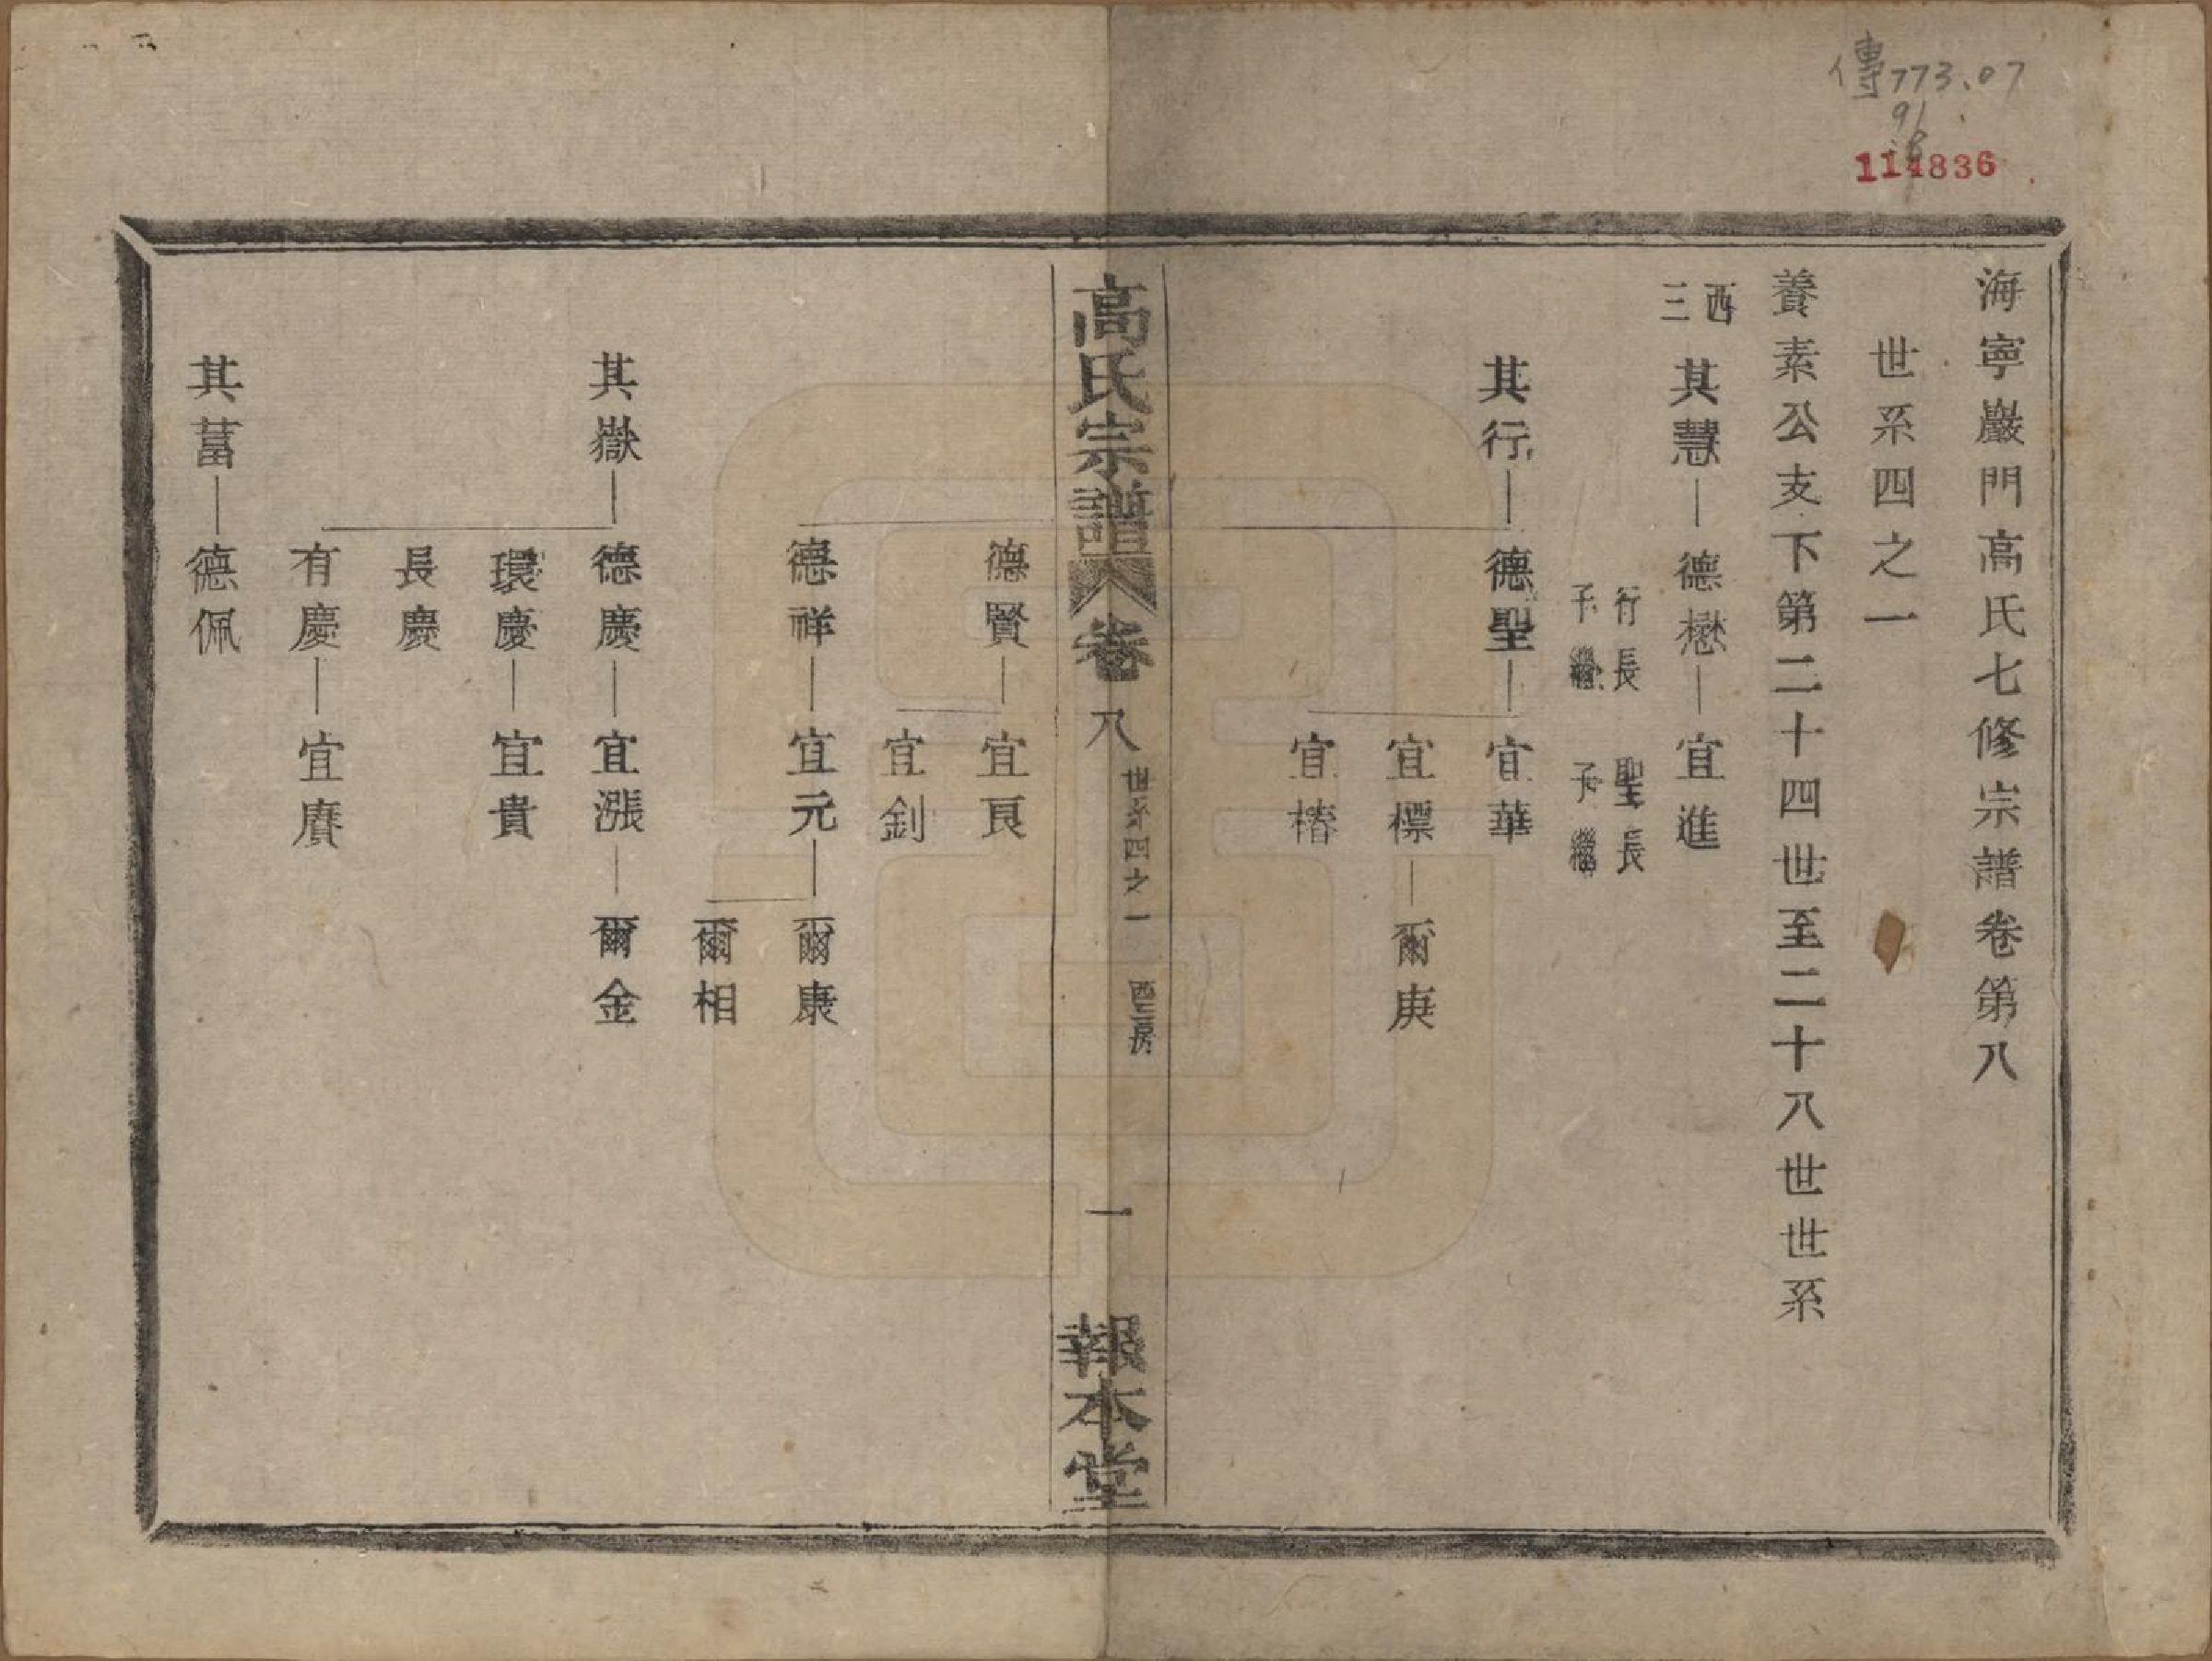 傳773.07
91
114836
海寧巖門高氏七修宗譜卷第八
世系四之一
養素公支下第二十四世至二十八世世系
西三
其慧—德懋—宜進
行長子繼
聖長子繼
其行—德聖—宜華
宜標—爾庚
宜椿
高氏宗譜 卷八 世系四之一 西三房 一 報本堂
德賢—宜良
宜釗
德祥—宜元—爾康
爾相
其嶽—德慶—宜漲—爾金
環慶—宜貴
長慶
有慶—宜賡
其葍—德佩